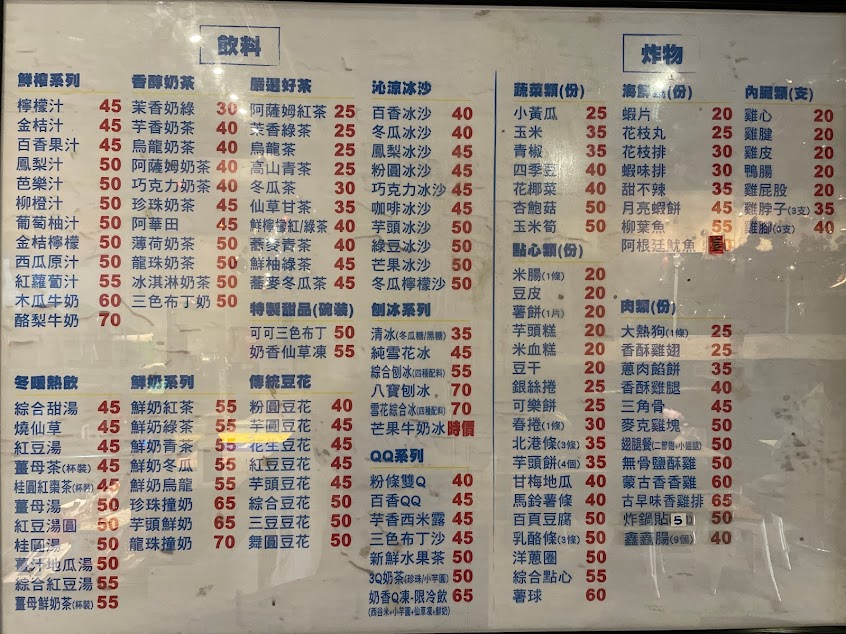 飲料
鮮榨系列
檸檬汁 45
金桔汁 45
百香果汁 45
鳳梨汁 50
芭樂汁 50
柳橙汁 50
葡萄柚汁 50
金桔檸檬 50
西瓜原汁 50
紅蘿蔔汁 55
木瓜牛奶 60
酪梨牛奶 70
冬暖熱飲
綜合甜湯 45
燒仙草 45
紅豆湯 45
薑母茶(杯裝) 45
桂圓紅棗茶(杯裝) 45
薑母湯 50
紅豆湯圓 50
桂圓湯 50
薑汁地瓜湯 50
綜合紅豆湯 55
薑母鮮奶茶(杯裝) 55
香醇奶茶
茉香奶綠 30
芋香奶茶 40
烏龍奶茶 40
阿薩姆奶茶 40
巧克力奶茶 40
珍珠奶茶 45
阿華田 45
薄荷奶茶 50
龍珠奶茶 50
冰淇淋奶茶 50
三色布丁奶 50
鮮奶系列
鮮奶紅茶 55
鮮奶綠茶 55
鮮奶青茶 55
鮮奶冬瓜 55
鮮奶烏龍 55
珍珠撞奶 65
芋頭鮮奶 65
龍珠撞奶 70
嚴選好茶
阿薩姆紅茶 25
茉香綠茶 25
烏龍茶 25
高山青茶 25
冬瓜茶 30
仙草甘茶 35
鮮檸檬紅/綠茶 40
蕎麥青茶 40
鮮柚綠茶 45
蕎麥冬瓜茶 45
特製甜品(碗裝)
可可三色布丁 50
奶香仙草凍 55
傳統豆花
粉圓豆花 40
芋圓豆花 45
花生豆花 45
紅豆豆花 45
芋頭豆花 45
綜合豆花 50
三豆豆花 50
舞圓豆花 50
沁涼冰沙
百香冰沙 40
冬瓜冰沙 40
鳳梨冰沙 45
粉圓冰沙 45
巧克力冰沙 45
咖啡冰沙 45
芋頭冰沙 50
綠豆冰沙 50
芒果冰沙 50
冬瓜檸檬沙 50
刨冰系列
清冰(冬瓜糖/黑糖) 35
純雪花冰 45
綜合刨冰(四種配料) 55
八寶刨冰 70
雪花綜合冰(四種配料) 70
芒果牛奶冰 時價
QQ系列
粉條雙Q 40
百香QQ 45
芋香西米露 45
三色布丁沙 45
新鮮水果茶 50
3Q奶茶(珍珠/小芋圓) 50
奶香Q凍-限冷飲 65
(西谷米+小芋圓+仙草凍+鮮奶)
炸物
蔬菜類(份)
小黃瓜 25
玉米 35
青椒 35
四季豆 40
花椰菜 40
杏鮑菇 50
玉米筍 50
點心類(份)
米腸(1條) 20
豆皮 20
薯餅(1片) 20
芋頭糕 20
米血糕 20
豆干 20
銀絲捲 25
可樂餅 25
春捲(1條) 30
北港條(3條) 35
芋頭餅(4個) 35
甘梅地瓜 40
馬鈴薯條 40
百頁豆腐 50
乳酪條(3條) 50
洋蔥圈 50
綜合點心 55
薯球 60
海鮮類(份)
蝦片 20
花枝丸 25
花枝排 30
蝦味排 30
甜不辣 35
月亮蝦餅 45
柳葉魚 55
阿根廷魷魚
肉類(份)
大熱狗(1條) 25
香酥雞翅 25
蔥肉餡餅 35
香酥雞腿 40
三角骨 45
麥克雞塊 50
翅腿餐(二節翅+小腿腿) 50
無骨鹽酥雞 50
蒙古香香雞 60
古早味香雞排 65
炸鍋貼 5 50
鑫鑫腸(9個) 40
內臟類(支)
雞心 20
雞腱 20
雞皮 20
鴨腸 20
雞屁股 20
雞脖子(3支) 35
雞腳(3支) 40